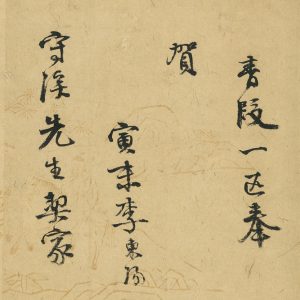 青段一匹奉
賀
寅末李東陽
守溪先生契家